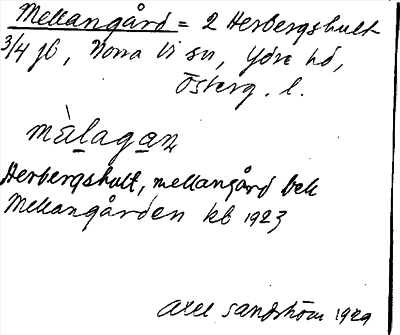 Mellangård = 2 Herbergshult
3/4 jb, Norra Vi sn, Ydre hd,
Österg. l.
mèlagaɳ
Herbergshult, mellangård bek
Mellangården kb 1923
Axel Sandström 1929